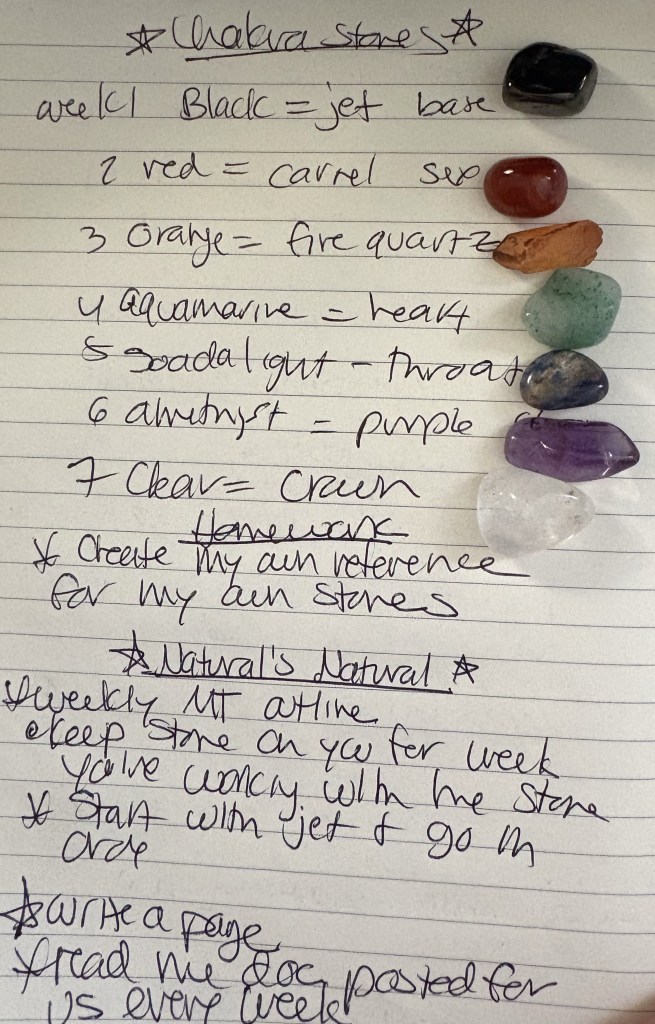 ☆ Chakra Stones ☆
week 1 Black = jet base
2 red = carrel sex
3 Orange = fire quartz
4 aquamarine = heart
5 Soadalight - throat
6 amethyst = purple
7 Clear = Crown
Homework
* Create my own reference
for my own Stones
☆ Natural's Natural ☆
* weekly MT
keep stone on you for week
you're working with the stone
* Start with jet & go in
orde
☆ write a page
* read the doc posted for
us every week